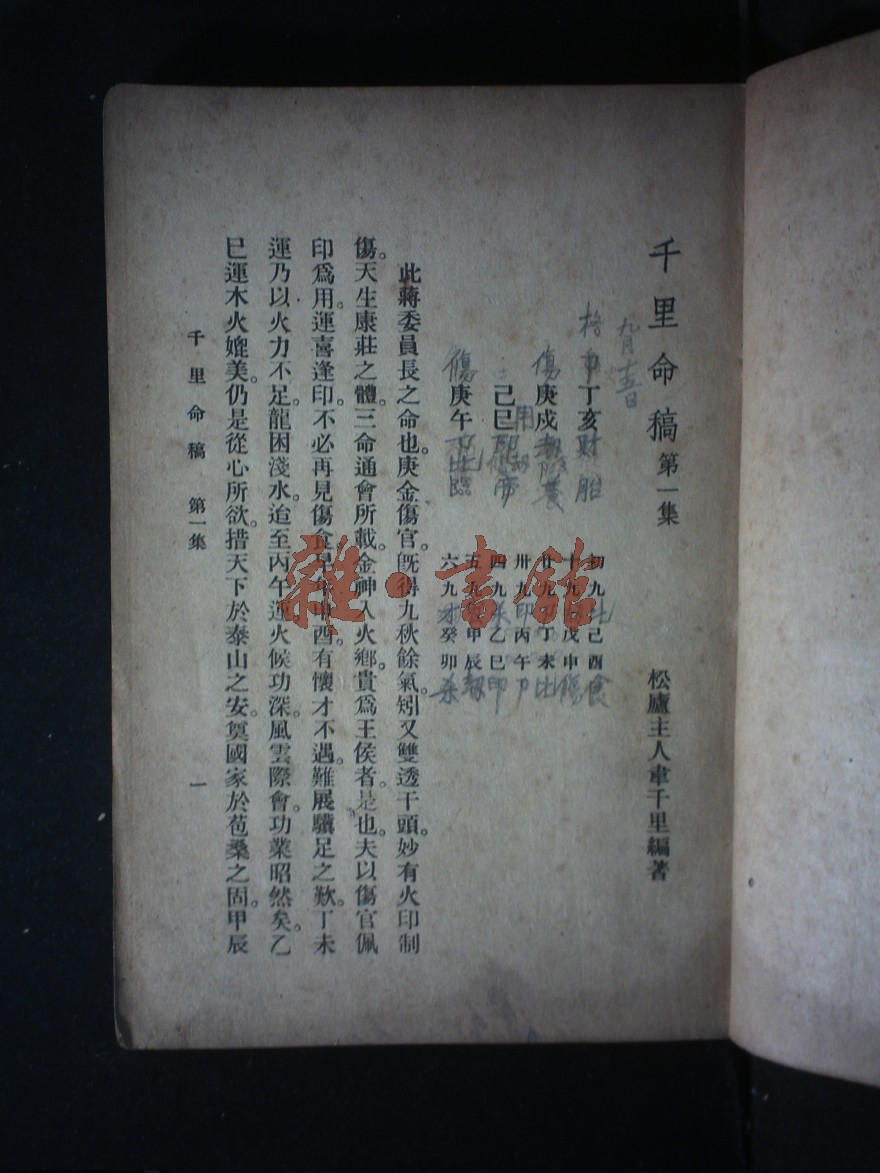 千里命稿 第一集
松廬主人韋千里編著
九月十五日
丁亥 財 胎
傷 庚戌 養
己巳
傷 庚午
初九 己酉 食
十九 戊申 傷
廿九 丁未 比
卅九 印 丙午
四九 乙巳 印
五九 甲辰 劫
六九 才 癸卯 杀
此蔣委員長之命也。庚金傷官。旣得九秋餘氣。矧又雙透干頭。妙有火印制
傷。天生康莊之體。三命通會所載。金神入火鄉。貴爲王侯者。是也。夫以傷官佩
印爲用。運喜逢印。不必再見傷食。早年申酉。有懷才不遇。難展驥足之歎。丁未
運乃以火力不足。龍困淺水。迨至丙午運。火候功深。風雲際會。功業昭然矣。乙
巳運木火媲美。仍是從心所欲。措天下於泰山之安。奠國家於苞桑之固。甲辰
千里命稿 第一集 一
雜·書館